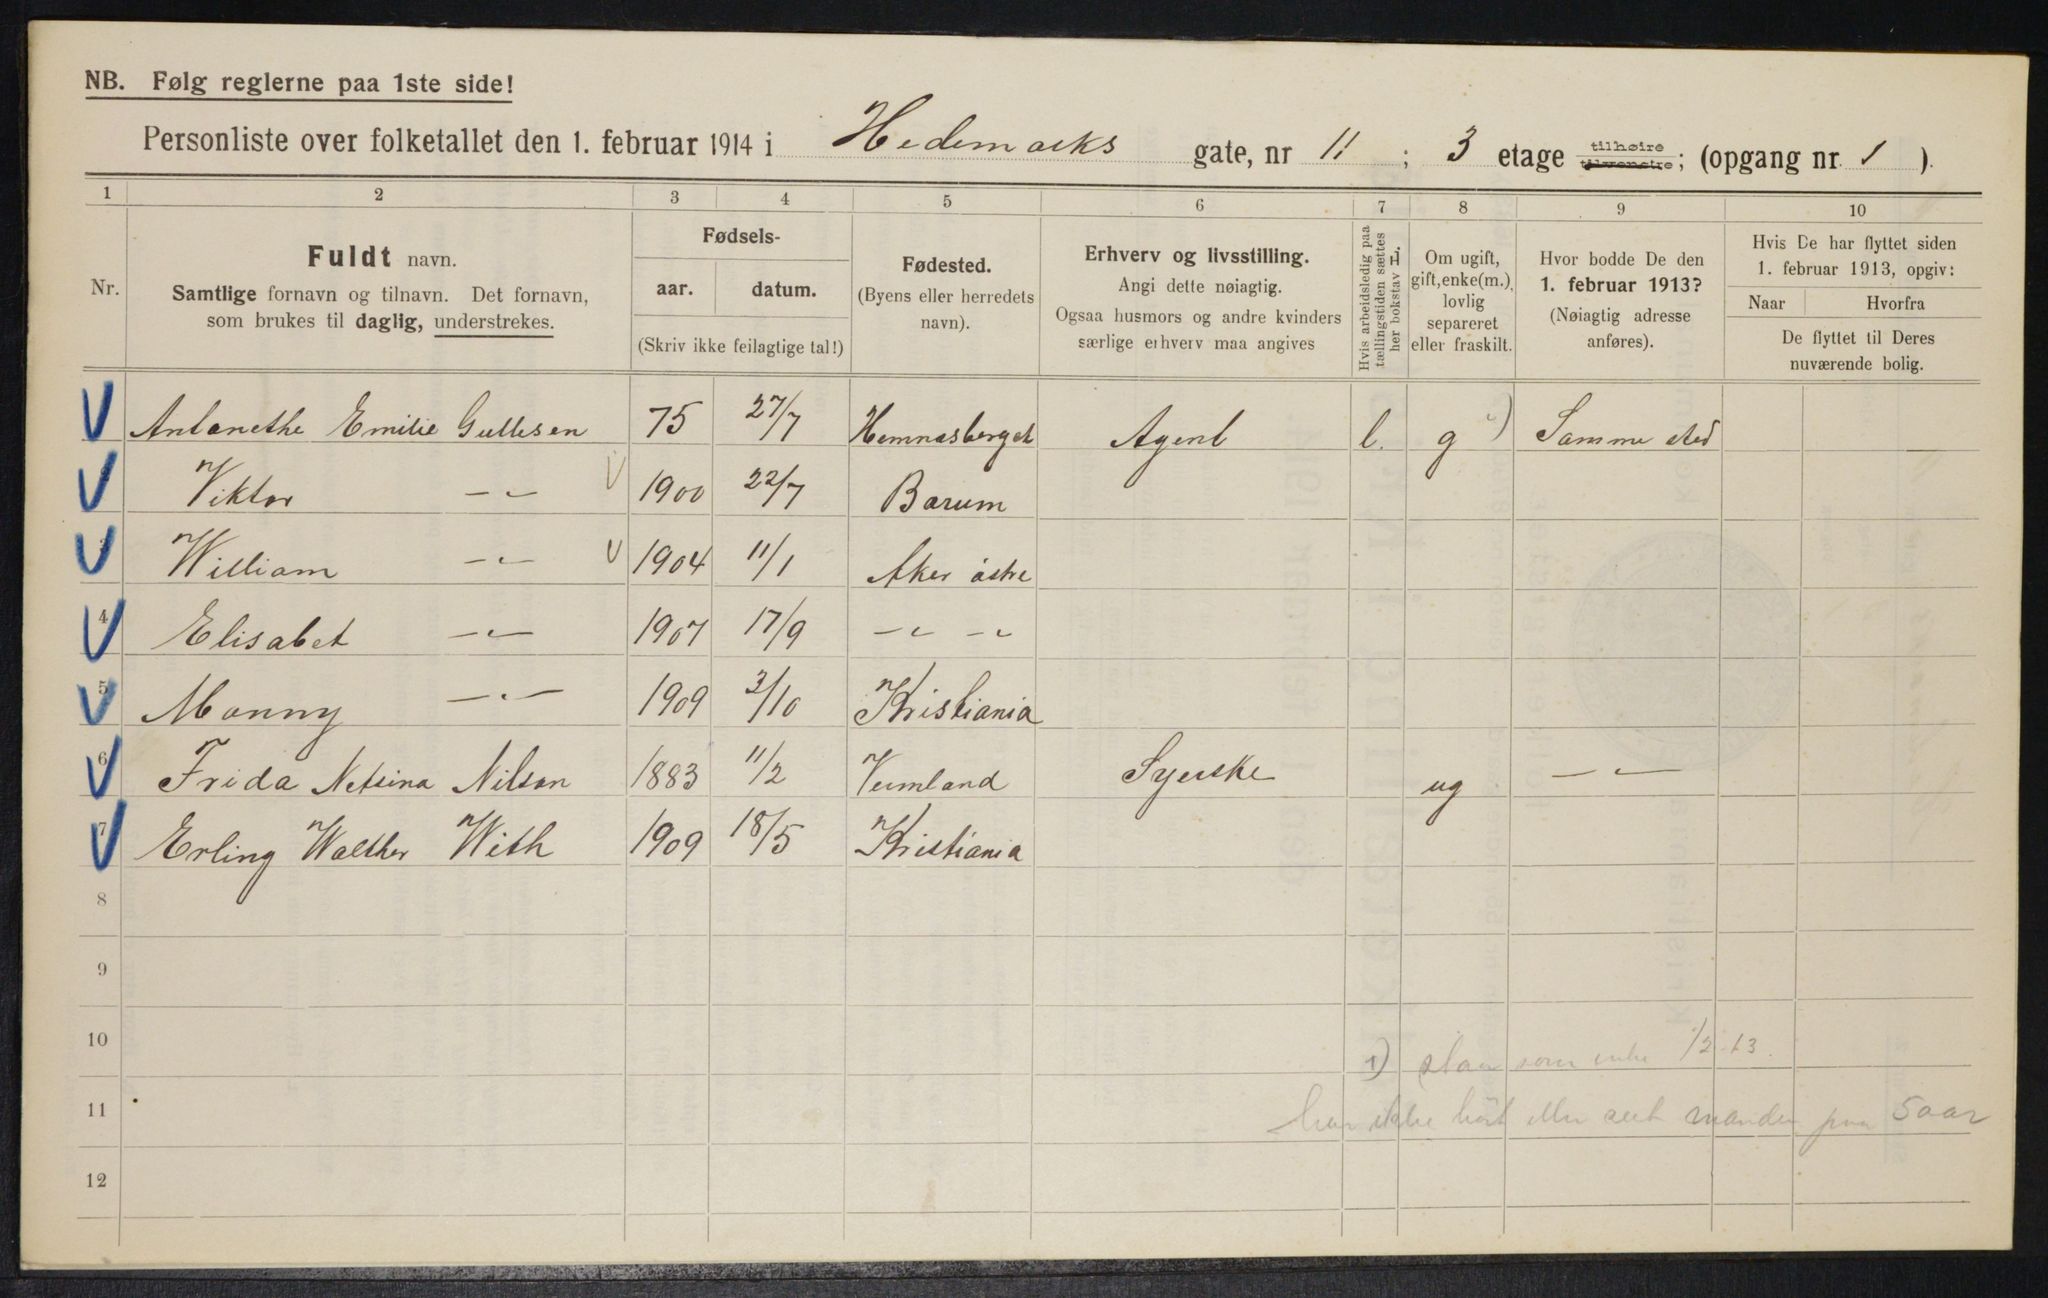 NB. Følg reglerne paa 1ste side!
Personliste over folketallet den 1. februar 1914 i Hedemarks gate, nr 11 ; 3 etage tilhøire tilvenstre; (opgang nr. 1 ).
1 2 3 4 5 6 7 8 9 10
Nr.
Fuldt navn.
Samtlige fornavn og tilnavn. Det fornavn,
som brukes til daglig, understrekes.
Fødsels-
aar. datum.
(Skriv ikke feilagtige tal!)
Fødested.
(Byens eller herredets
navn).
Erhverv og livsstilling.
Angi dette nøiagtig.
Ogsaa husmors og andre kvinders
særlige erhverv maa angives
Hvis arbeidsledig paa
tællingstiden sættes
her bokstav L.
Om ugift,
gift, enke(m.),
lovlig
separeret
eller fraskilt.
Hvor bodde De den
1. februar 1913?
(Nøiagtig adresse
anføres).
Hvis De har flyttet siden
1. februar 1913, opgiv:
Naar Hvorfra
De flyttet til Deres
nuværende bolig.
Antonethe Emilie Gullesen 75 27/7 Hemnesberget Agent l. g 1) Samme sted
Viktor -"- 1900 22/7 Barum
3 William -"- 1904 11/1 Aker östre
4 Elisabet -"- 1907 17/9 -"- -"-
5 Monny -"- 1909 3/10 Kristiania
6 Frida Nilson 1883 11/2 Vermland Syerske ug -"-
7 Erling Walther With 1909 18/5 Kristiania
8
9
10
1) staar som enke 1/2 13.
11
har ikke hört eller seet manden paa 5 aar
12